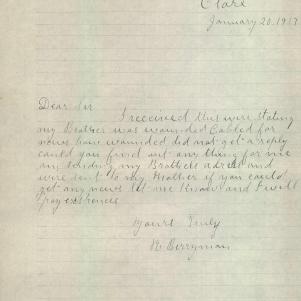 Clare
January 20. 1917
Dear Sir
I received this wire stating
my Brother was wounded Cabled for
news how wounded did not get a reply
could you find out any thing for me
am sending my Brothers adress and
wire sent to my Mother if you could
get any news let me know and I will
pay expences
Yours Truly
Berryman